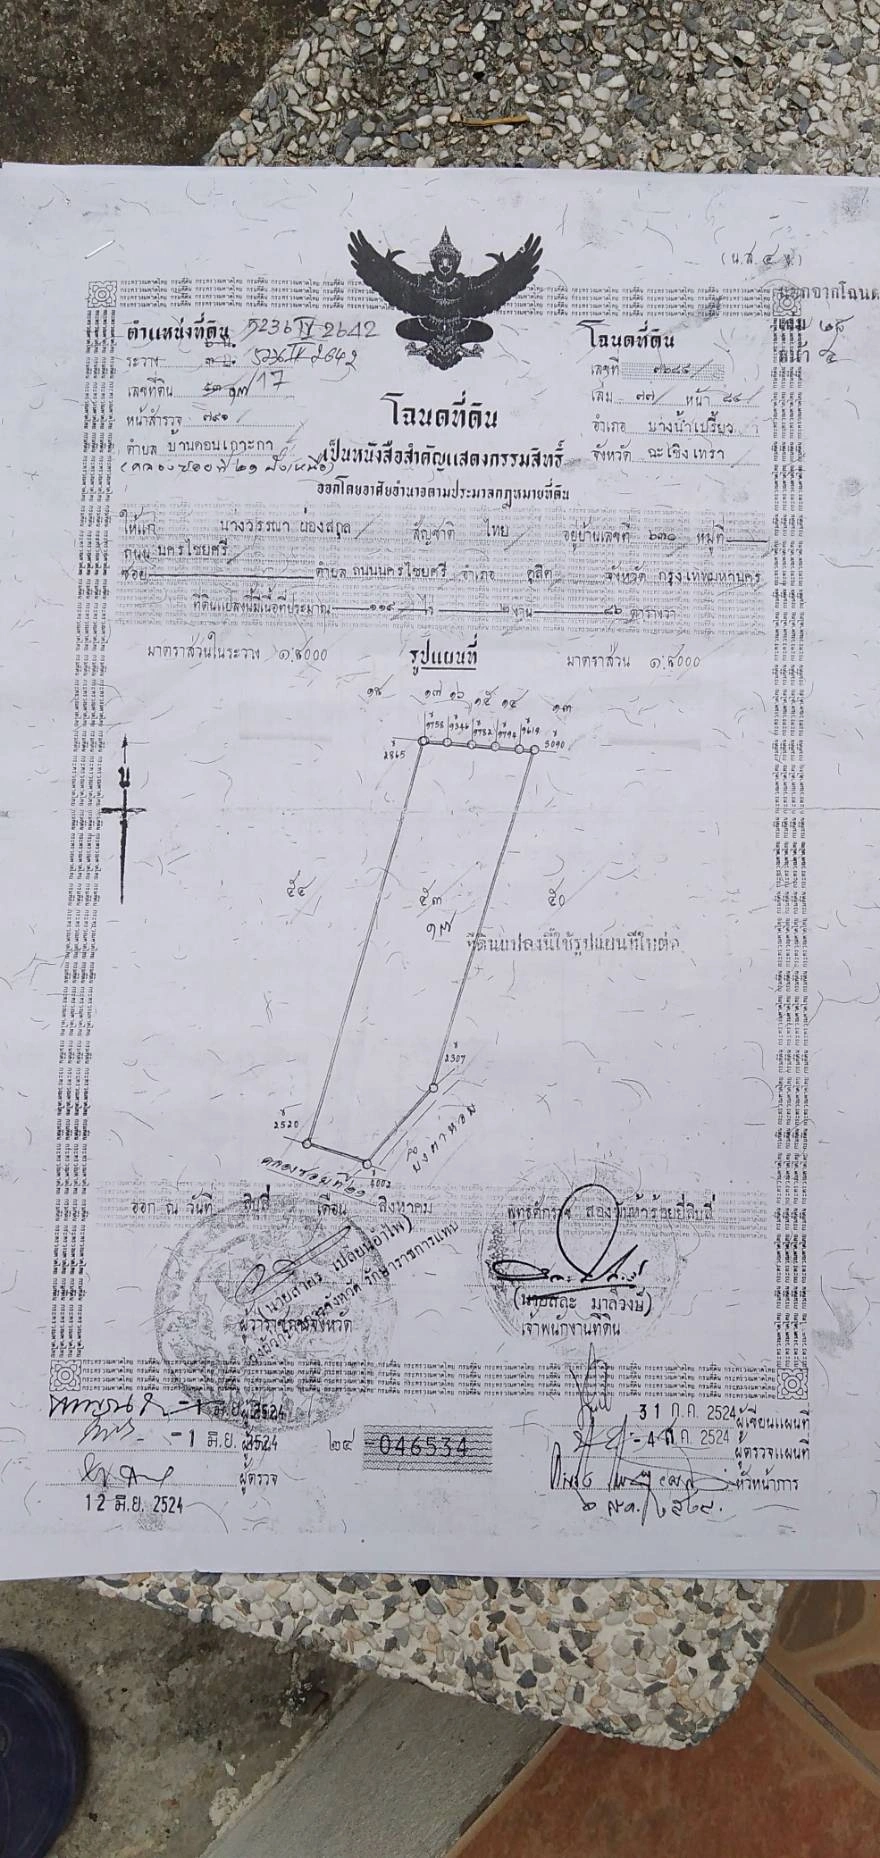 (น.ส. ๔ จ.)
ตำแหน่งที่ดิน 5236 IV 2642
ระวาง 5236 IV 2642
เลขที่ดิน ๕๓ ๑๗/17
หน้าสำรวจ ๗๙๑
ตำบล บ้านดอนเกาะกา
(คลองซอยที่ ๒๑ ฝั่งเหนือ)
โฉนดที่ดิน
เลขที่ ๗๖๘๔
เล่ม ๗๗ หน้า ๘๔
อำเภอ บางน้ำเปรี้ยว
จังหวัด ฉะเชิงเทรา
โฉนดที่ดิน
เป็นหนังสือสำคัญแสดงกรรมสิทธิ์
ออกโดยอาศัยอำนาจตามประมวลกฎหมายที่ดิน
ให้แก่ นางวรรณา ผ่องสกุล สัญชาติ ไทย อยู่บ้านเลขที่ ๖๓๐ หมู่ที่
ถนน นครไชยศรี
ซอย ตำบล ถนนนครไชยศรี อำเภอ ดุสิต จังหวัด กรุงเทพมหานคร
ที่ดินแปลงนี้มีเนื้อที่ประมาณ ๑๑๙ ไร่ ๒ งาน ๘๖ ตารางวา
มาตราส่วนในระวาง ๑:๘๐๐๐ รูปแผนที่ มาตราส่วน ๑:๘๐๐๐
๑๘ ๑๗ ๑๖ ๑๕ ๑๔ ๑๓
2865 9758 9346 9782 9794 9619 3090
น
๕๔ ๕๓ ๕๐
๑๗
ที่ดินแปลงนี้ใช้รูปแผนที่ใบต่อ
2307
2520
บึงตาหอม
คลองซอยที่ ๒๑
ออก ณ วันที่ สิบสี่ เดือน สิงหาคม พุทธศักราช สองพันห้าร้อยยี่สิบสี่
(นายสาคร เปลี่ยนอำไพ)
รักษาราชการแทน
ผู้ว่าราชการจังหวัด
(นายสละ มาลีวงษ์)
เจ้าพนักงานที่ดิน
-1 มิ.ย. 2524
-1 มิ.ย. 2524
ผู้ตรวจ
12 มิ.ย. 2524
๒๔ -046534
31 ก.ค. 2524 ผู้เขียนแผนที่
2524 ผู้ตรวจแผนที่
หัวหน้าการ